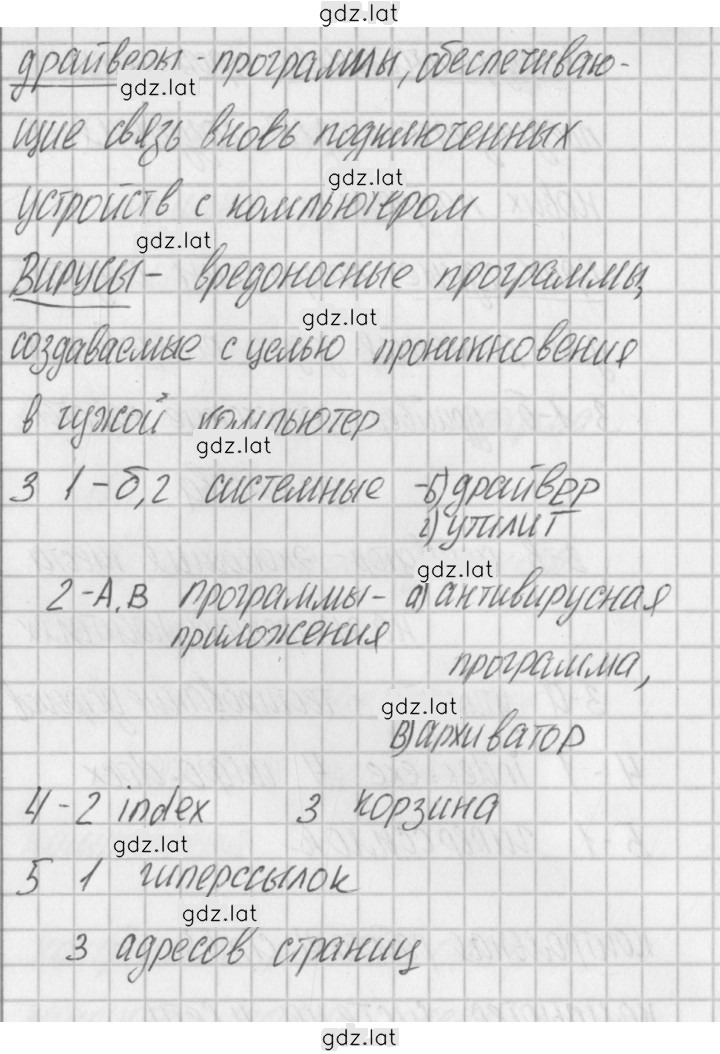 gdz.lat
драйверы - программы, обеспечиваю-
gdz.lat
щие связь вновь подключенных
gdz.lat
устройств с компьютером
gdz.lat
Вирусы - вредоносные программы,
gdz.lat
создаваемые с целью проникновения
в чужой компьютер
gdz.lat
3 1-б,г системные -б) драйвер
г) утилит
gdz.lat
2-А,В программы- а) антивирусная
приложения
программа,
gdz.lat
В) архиватор
4-2 index 3 корзина
gdz.lat
5 1 гиперссылок
gdz.lat
3 адресов страниц
gdz.lat